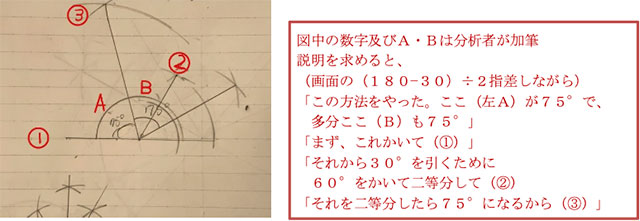 ③
②
B
A
75°
75°
①
図中の数字及びA・Bは分析者が加筆
説明を求めると、
(画面の(180−30)÷2指差しながら)
「この方法をやった。ここ(左A)が75°で、
多分ここ(B)も75°」
「まず、これかいて(①)」
「それから30°を引くために
60°をかいて二等分して(②)
「それを二等分したら75°になるから(③)」